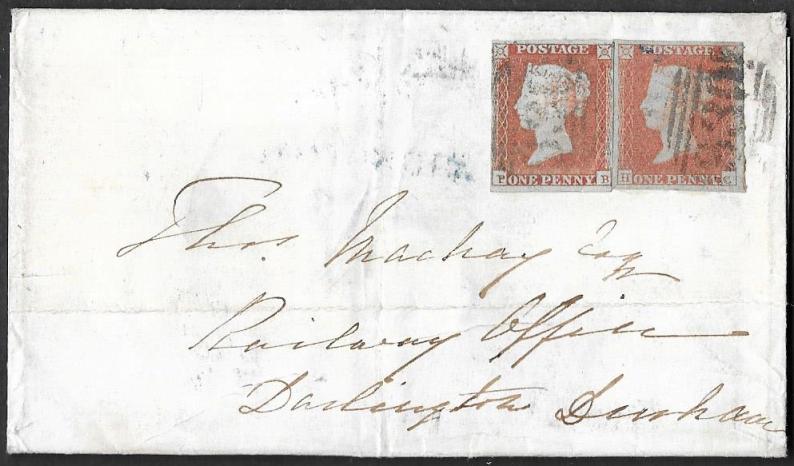 POSTAGE POSTAGE
P ONE PENNY B H ONE PENNY G
Thos. Mackay Esq
Railway Office
Darlington Durham